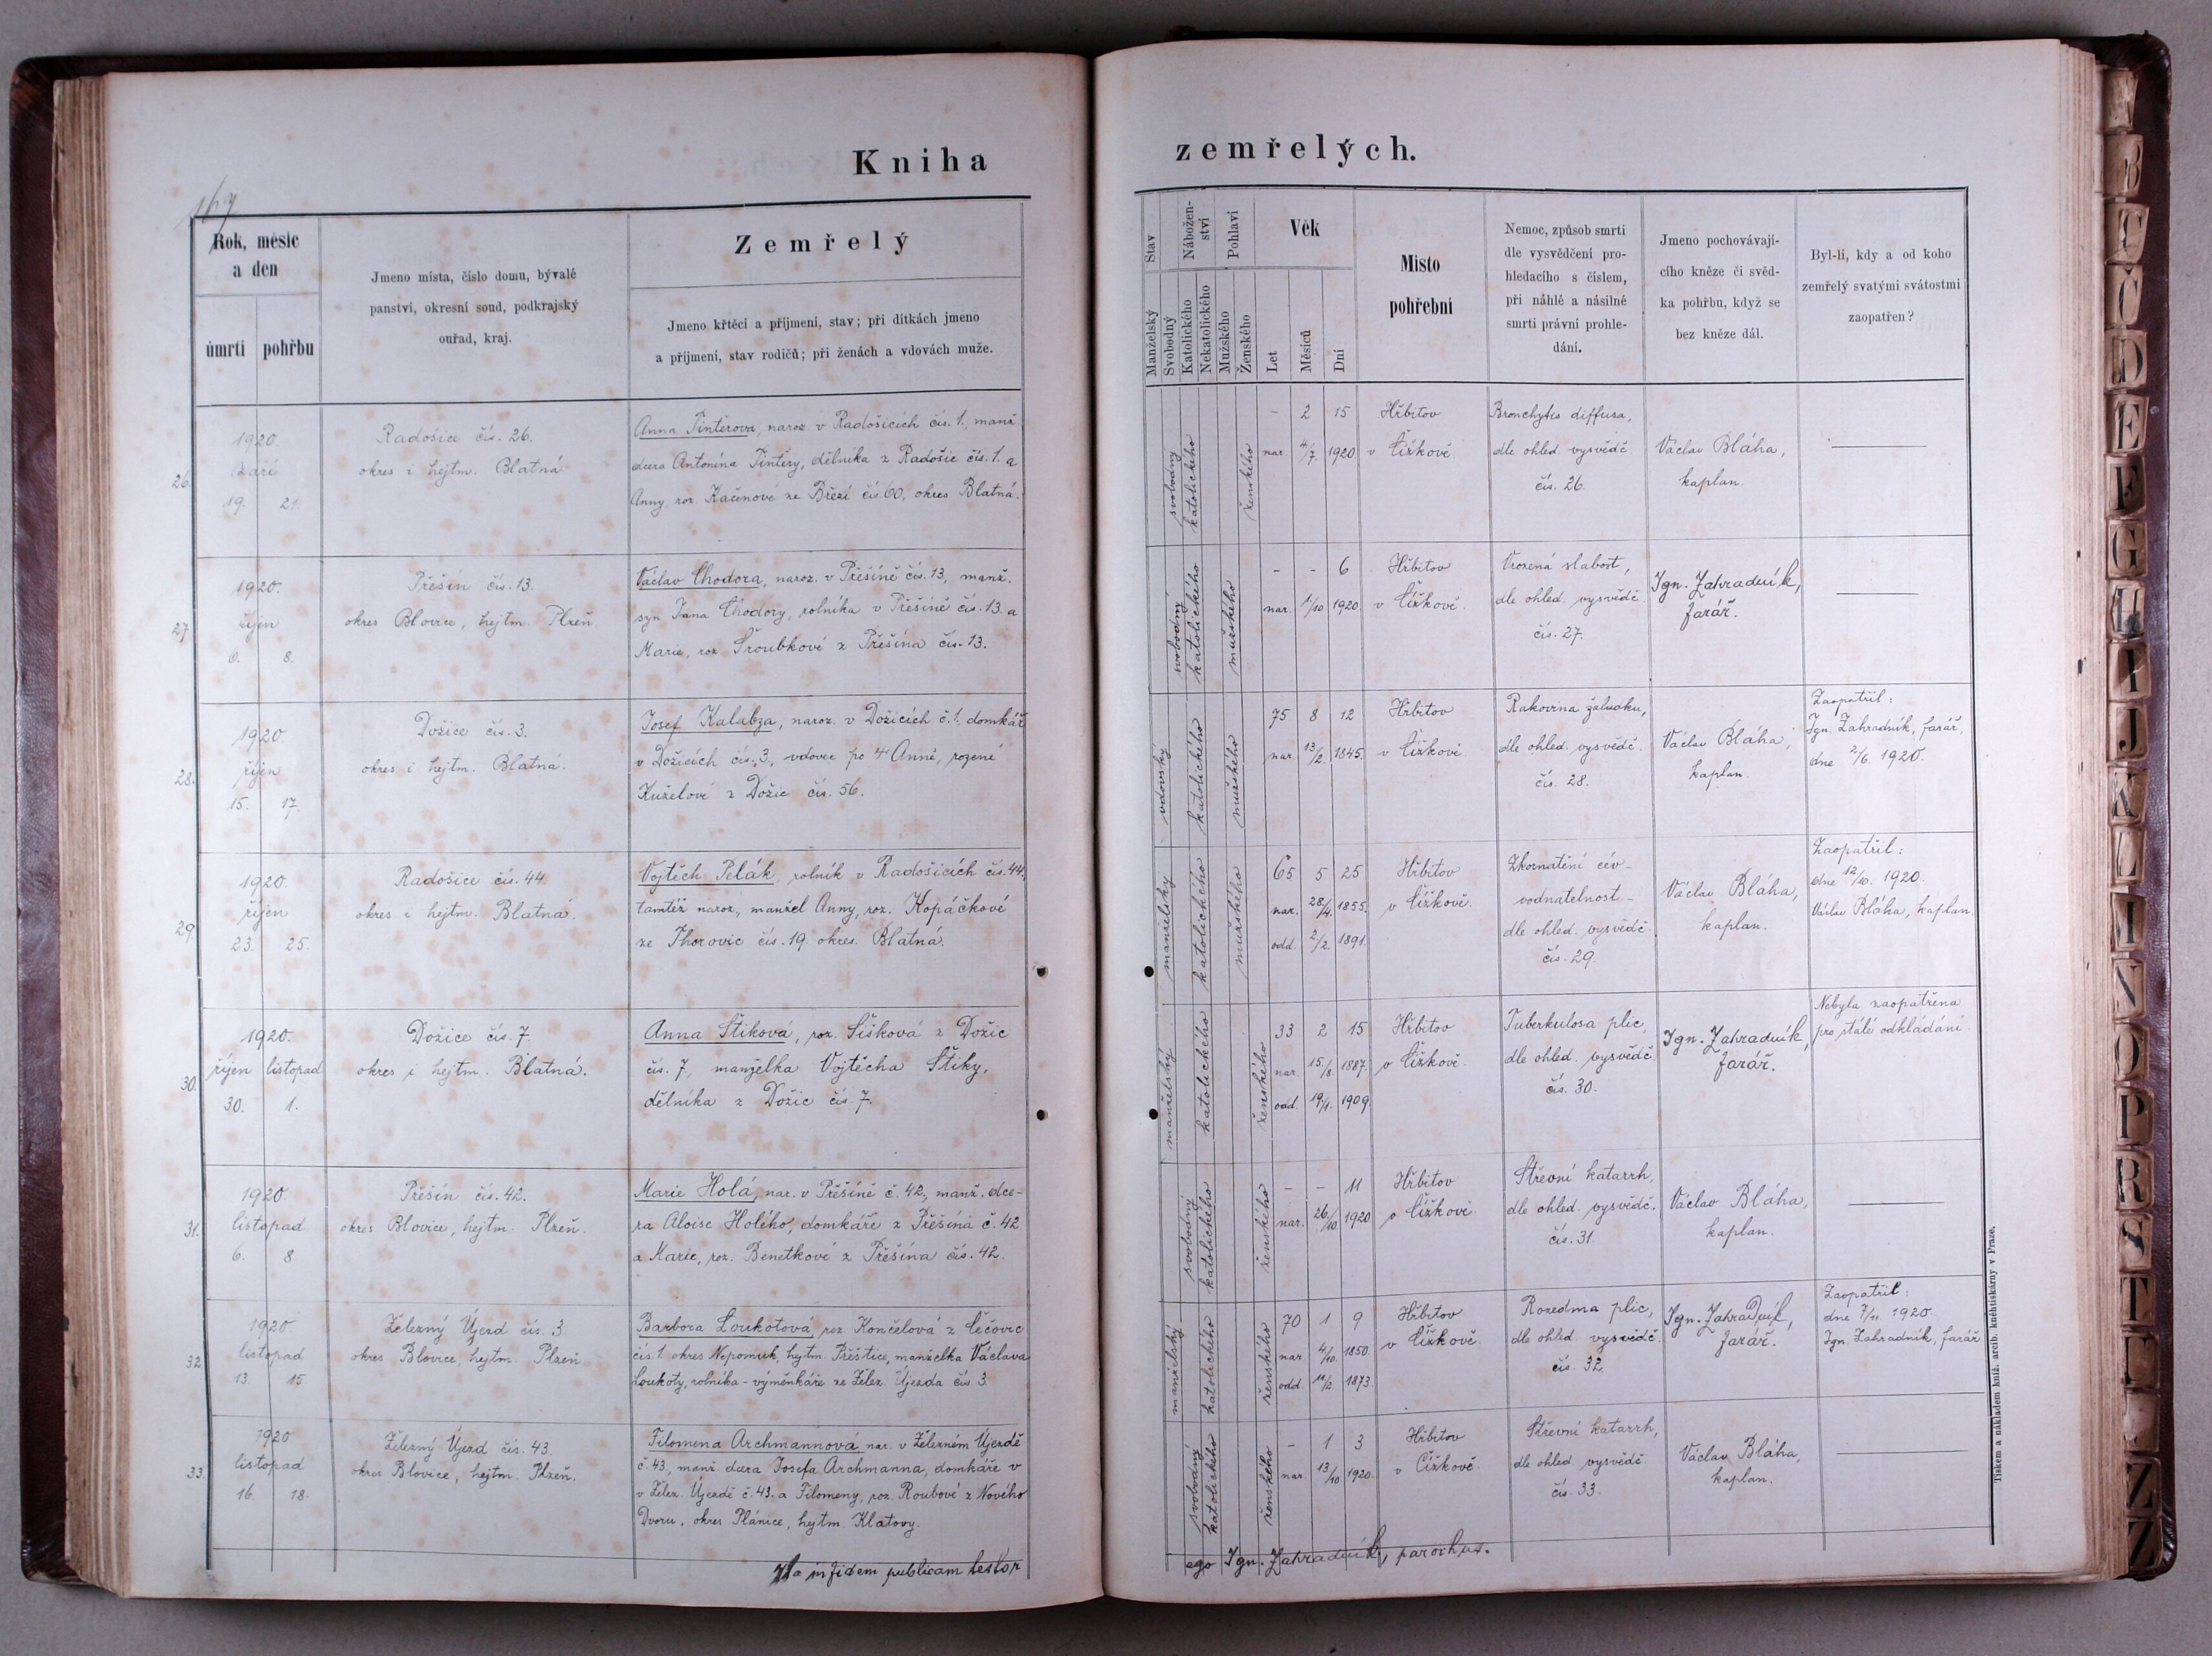 Kniha
zemřelých.
167
Rok, měsíc
a den
úmrtí
pohřbu
Jmeno místa, číslo domu, bývalé
panství, okresní soud, podkrajský
ouřad, kraj.
Zemřelý
Jmeno křtěcí a příjmení, stav; při dítkách jmeno
a příjmení, stav rodičů; při ženách a vdovách muže.
Stav
Manželský
Svobodný
Nábožen-
ství
Katolického
Nekatolického
Pohlaví
Mužského
Ženského
Věk
Let
Měsíců
Dní
Místo
pohřební
Nemoc, způsob smrti
dle vysvědčení pro-
hledacího s číslem,
při náhlé a násilné
smrti právní prohle-
dání.
Jmeno pochovávají-
cího kněze či svěd-
ka pohřbu, když se
bez kněze dál.
Byl-li, kdy a od koho
zemřelý svatými svátostmi
zaopatřen?
26.
1920.
září
19. 21.
Radošice čís. 26.
okres i hejtm. Blatná
Anna Tintěrova, naroz. v Radošicích čís. 1, manž.
dcera Antonína Tintěry, dělníka z Radošic čís. 1. a
Anny roz. Kačenové ze Březí čís. 60, okres Blatná.
svobodný
katolického
ženského
- 2 15
nar. 4/7. 1920
Hřbitov
v Čížkově.
Bronchytis diffusa,
dle ohled. vysvědč.
čís. 26.
Václav Bláha,
kaplan.
27.
1920.
říjen
6. 8.
Přešín čís. 13.
okres Blovice, hejtm. Plzeň
Václav Chodora, naroz. v Přešíně čís. 13, manž.
syn Jana Chodory, rolníka v Přešíně čís. 13. a
Marie, roz. Šroubkové z Přešína čís. 13.
svobodný
katolického
mužského
- - 6
nar. 1/10. 1920.
Hřbitov
v Čížkově.
Vrozená slabost,
dle ohled. vysvědč.
čís. 27.
Ign. Zahradník,
farář.
28.
1920.
říjen
15. 17.
Dožice čís. 3.
okres i hejtm. Blatná.
Josef Kalabza, naroz. v Dožicích č. 1., domkář
v Dožicích čís. 3., vdovec po † Anně, rozené
Kuželové z Dožic čís. 56.
vdovský
katolického
mužského
75 8 12
nar. 13/2. 1845.
Hřbitov
v Čížkově.
Rakovina žaludku,
dle ohled. vysvědč.
čís. 28.
Václav Bláha,
kaplan.
Zaopatřil:
Ign. Zahradník, farář,
dne 2/6. 1920.
29.
1920.
říjen
23. 25.
Radošice čís. 44.
okres i hejtm. Blatná.
Vojtěch Pelák, rolník v Radošicích čís. 44,
tamtéž naroz., manžel Anny, roz. Kopáčkové
ze Thorovic čís. 19. okres. Blatná.
manželský
katolického
mužského
65 5 25
nar. 28/4. 1855.
odd. 2/2. 1891.
Hřbitov
v Čížkově.
Zkornatění cév -
vodnatelnost -
dle ohled. vysvědč.
čís. 29.
Václav Bláha,
kaplan.
Zaopatřil:
dne 12/10. 1920.
Václav Bláha, kaplan.
30.
1920.
říjen listopad
30. 1.
Dožice čís. 7.
okres i hejtm. Blatná.
Anna Štiková, roz. Šišková z Dožic
čís. 7, manželka Vojtěcha Štiky,
dělníka z Dožic čís 7.
manželský
katolického
ženského
33 2 15
nar. 15/8. 1887.
odd. 19/1. 1909
Hřbitov
v Čížkově.
Tuberkulosa plic,
dle ohled. vysvědč.
čís. 30.
Ign. Zahradník,
farář.
Nebyla zaopatřena
pro stálé odkládání.
31.
1920.
listopad
6. 8
Přešín čís. 42.
okres Blovice, hejtm. Plzeň.
Marie Holá, nar. v Přešíně č. 42., manž. dce-
ra Aloise Holého, domkáře z Přešína č. 42
a Marie, roz. Benetkové z Přešína čís. 42.
svobodný
katolického
ženského
- - 11
nar. 26./10 1920
Hřbitov
v Čížkově
Střevní katarrh,
dle ohled. vysvědč.
čís. 31.
Václav Bláha,
kaplan.
32.
1920
listopad
13. 15
Železný Újezd čís. 3.
okres Blovice, hejtm. Plzeň
Barbora Loukotová, roz. Končelová z Čečovic
čís. 1. okres Nepomuk, hejtm. Přeštice, manželka Václava
Loukoty, rolníka - výměnkáře ze Želez. Újezda čís 3.
manželský
katolického
ženského
70 1 9
nar. 4/10. 1850.
odd. 11/2 1873
Hřbitov
v Čížkově.
Rozedma plic,
dle ohled. vysvědč.
čís. 32.
Ign. Zahradník,
farář.
Zaopatřil:
dne 7/11. 1920
Ign. Zahradník, farář.
33.
1920
listopad
16. 18.
Železný Újezd čís. 43.
okres Blovice, hejtm. Plzeň.
Filomena Archmannová nar. v Železném Újezdě
č. 43., manž. dcera Josefa Archmanna, domkáře v
v Želez. Újezdě č. 43. a Filomeny, roz. Roubové z Nového
Dvoru, okres Plánice, hejtm. Klatovy.
svobodný
katolického
ženského
- 1 3
nar. 13/10 1920.
Hřbitov
v Čížkově.
Střevní katarrh,
dle ohled vysvědč.
čís. 33.
Václav Bláha,
kaplan.
Ita in fidem publicam testor
ego Ign. Zahradník, parochus.
Tiskem a nákladem kníž. arcib. knihtiskárny v Praze.
B
C
Č
D
E
F
G
H
I
J
K
L
M
N
O
P
R
S
T
Z
Ž